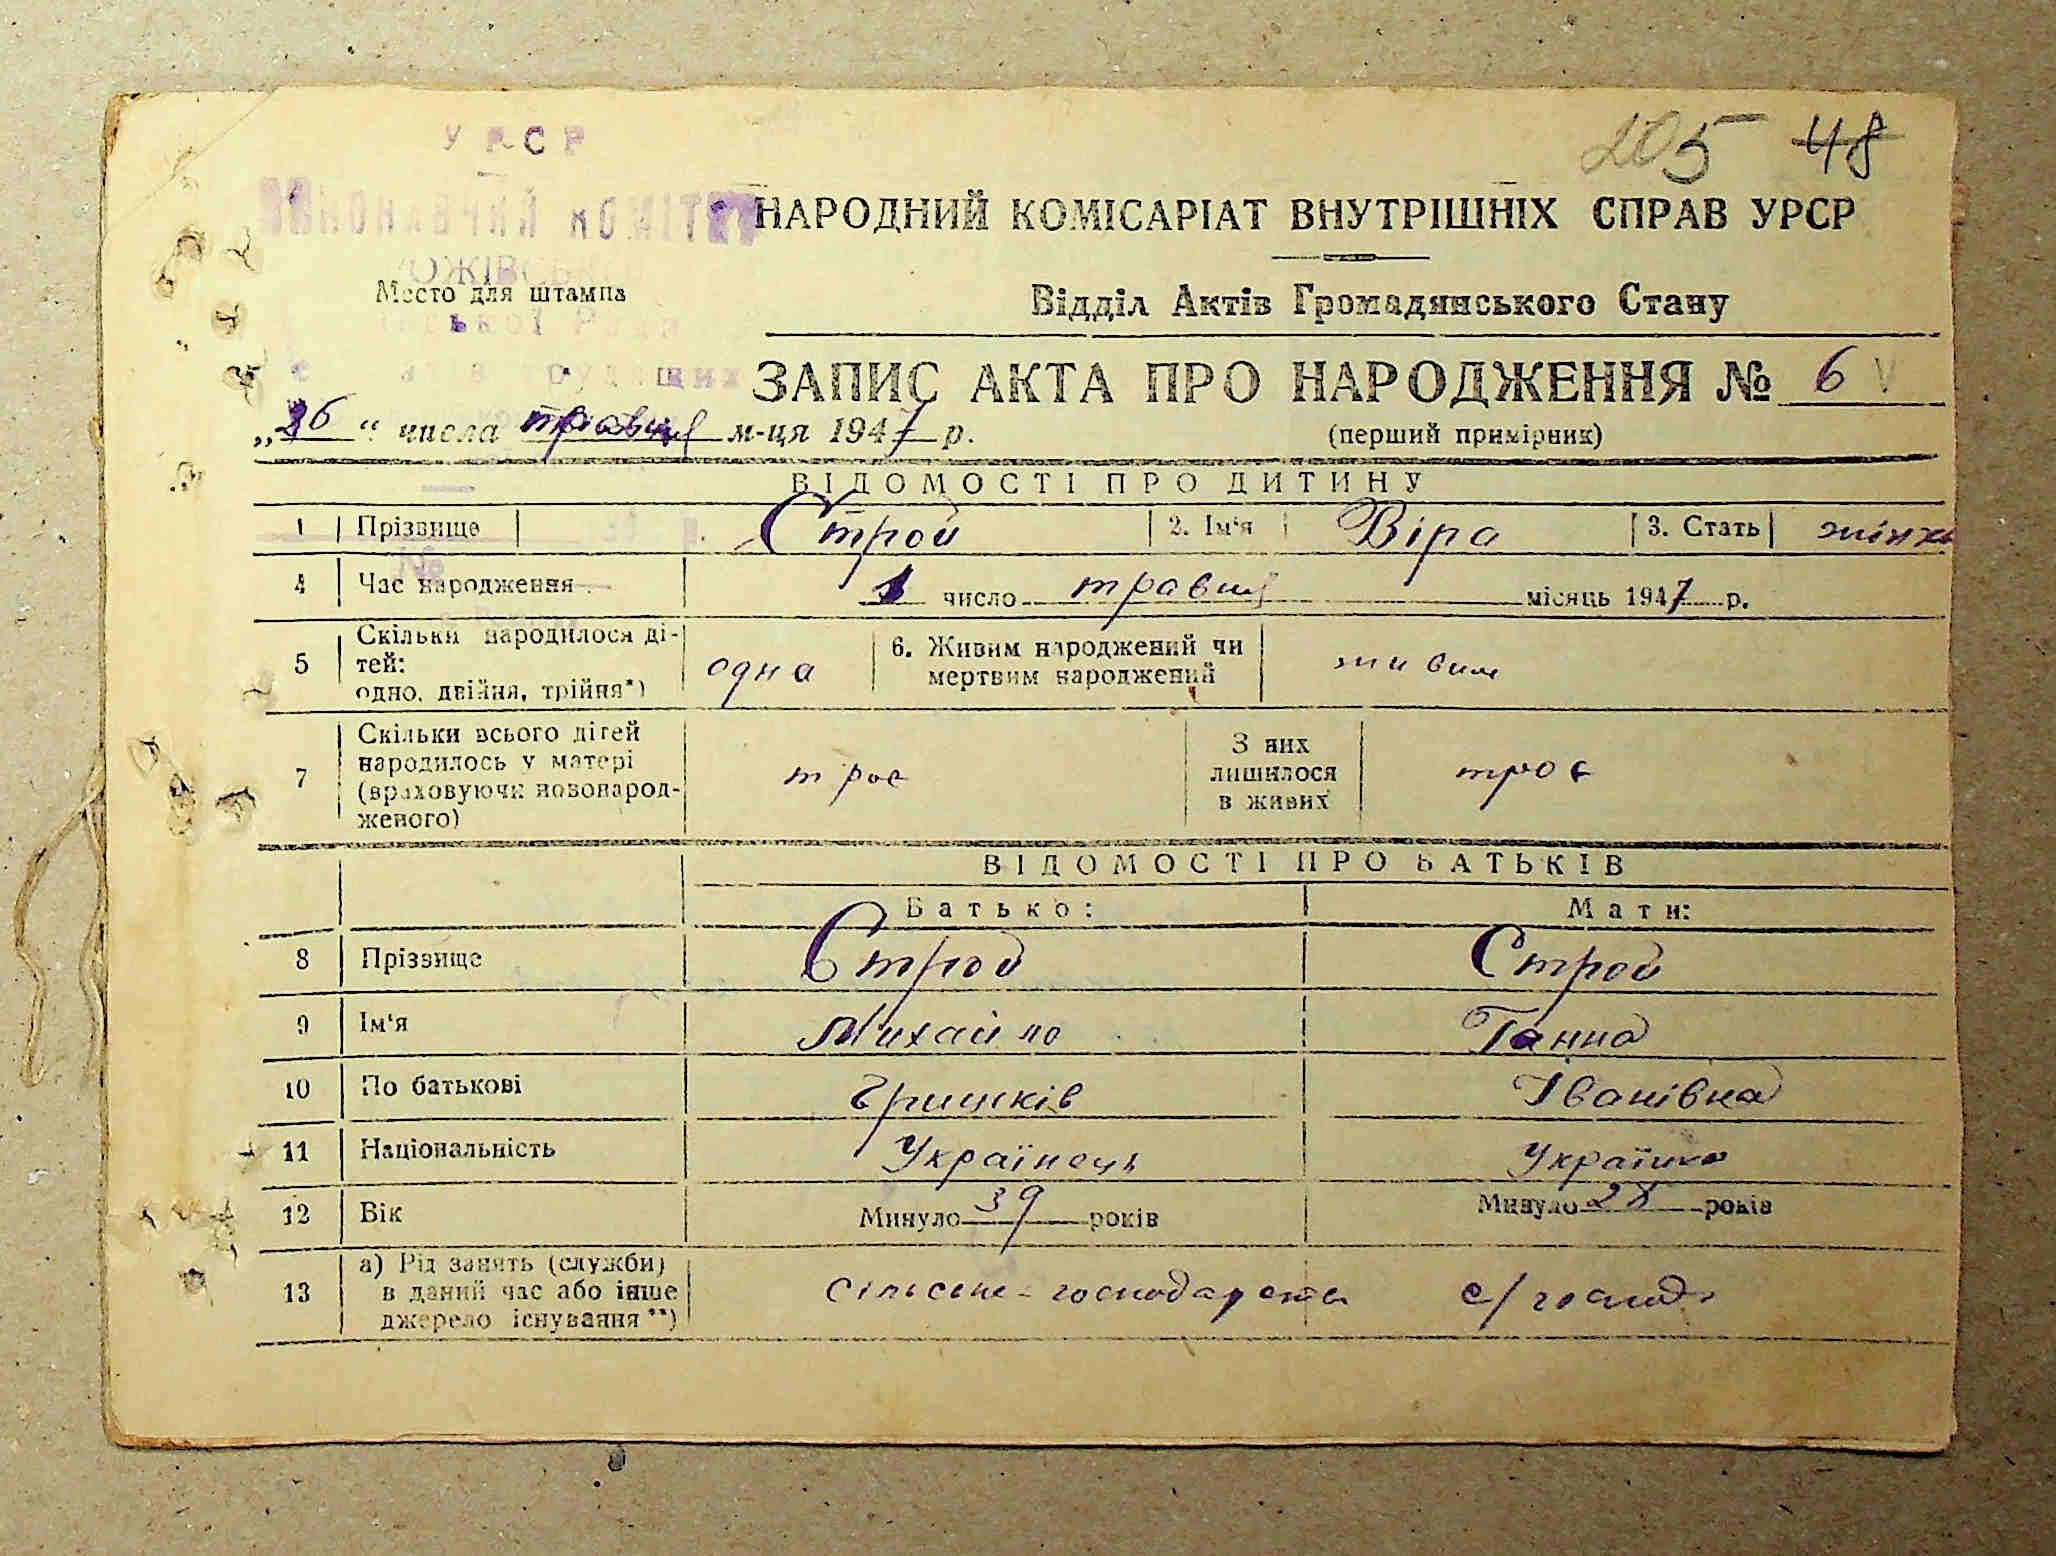 205 48
УРСР
ВИКОНАВЧИЙ КОМІТЕТ
НАРОДНИЙ КОМІСАРІАТ ВНУТРІШНІХ СПРАВ УРСР
Место для штампа
Відділ Актів Громадянського Стану
ЗАПИС АКТА ПРО НАРОДЖЕННЯ № 6
„26“ числа травня м-ця 1947 р.
(перший примірник)
ВІДОМОСТІ ПРО ДИТИНУ
1 Прізвище Строй 2. Ім'я Віра 3. Стать жінк
4 Час народження 1 число травня місяць 1947 р.
5 Скільки народилося ді-
тей:
одно, двійня, трійня*) одна
6. Живим народжений чи
мертвим народжений живим
7 Скільки всього дітей
народилось у матері
(враховуючи новонарод-
женого) троє
З них
лишилося
в живих троє
ВІДОМОСТІ ПРО БАТЬКІВ
Батько: Мати:
8 Прізвище Строй Строй
9 Ім'я Михайло Ганна
10 По батькові Гришків Іванівна
11 Національність Українець Українка
12 Вік Минуло 39 років Минуло 28 років
13 а) Рід занять (служби)
в даний час або інше
джерело існування**) сільське-господарство с/господ.